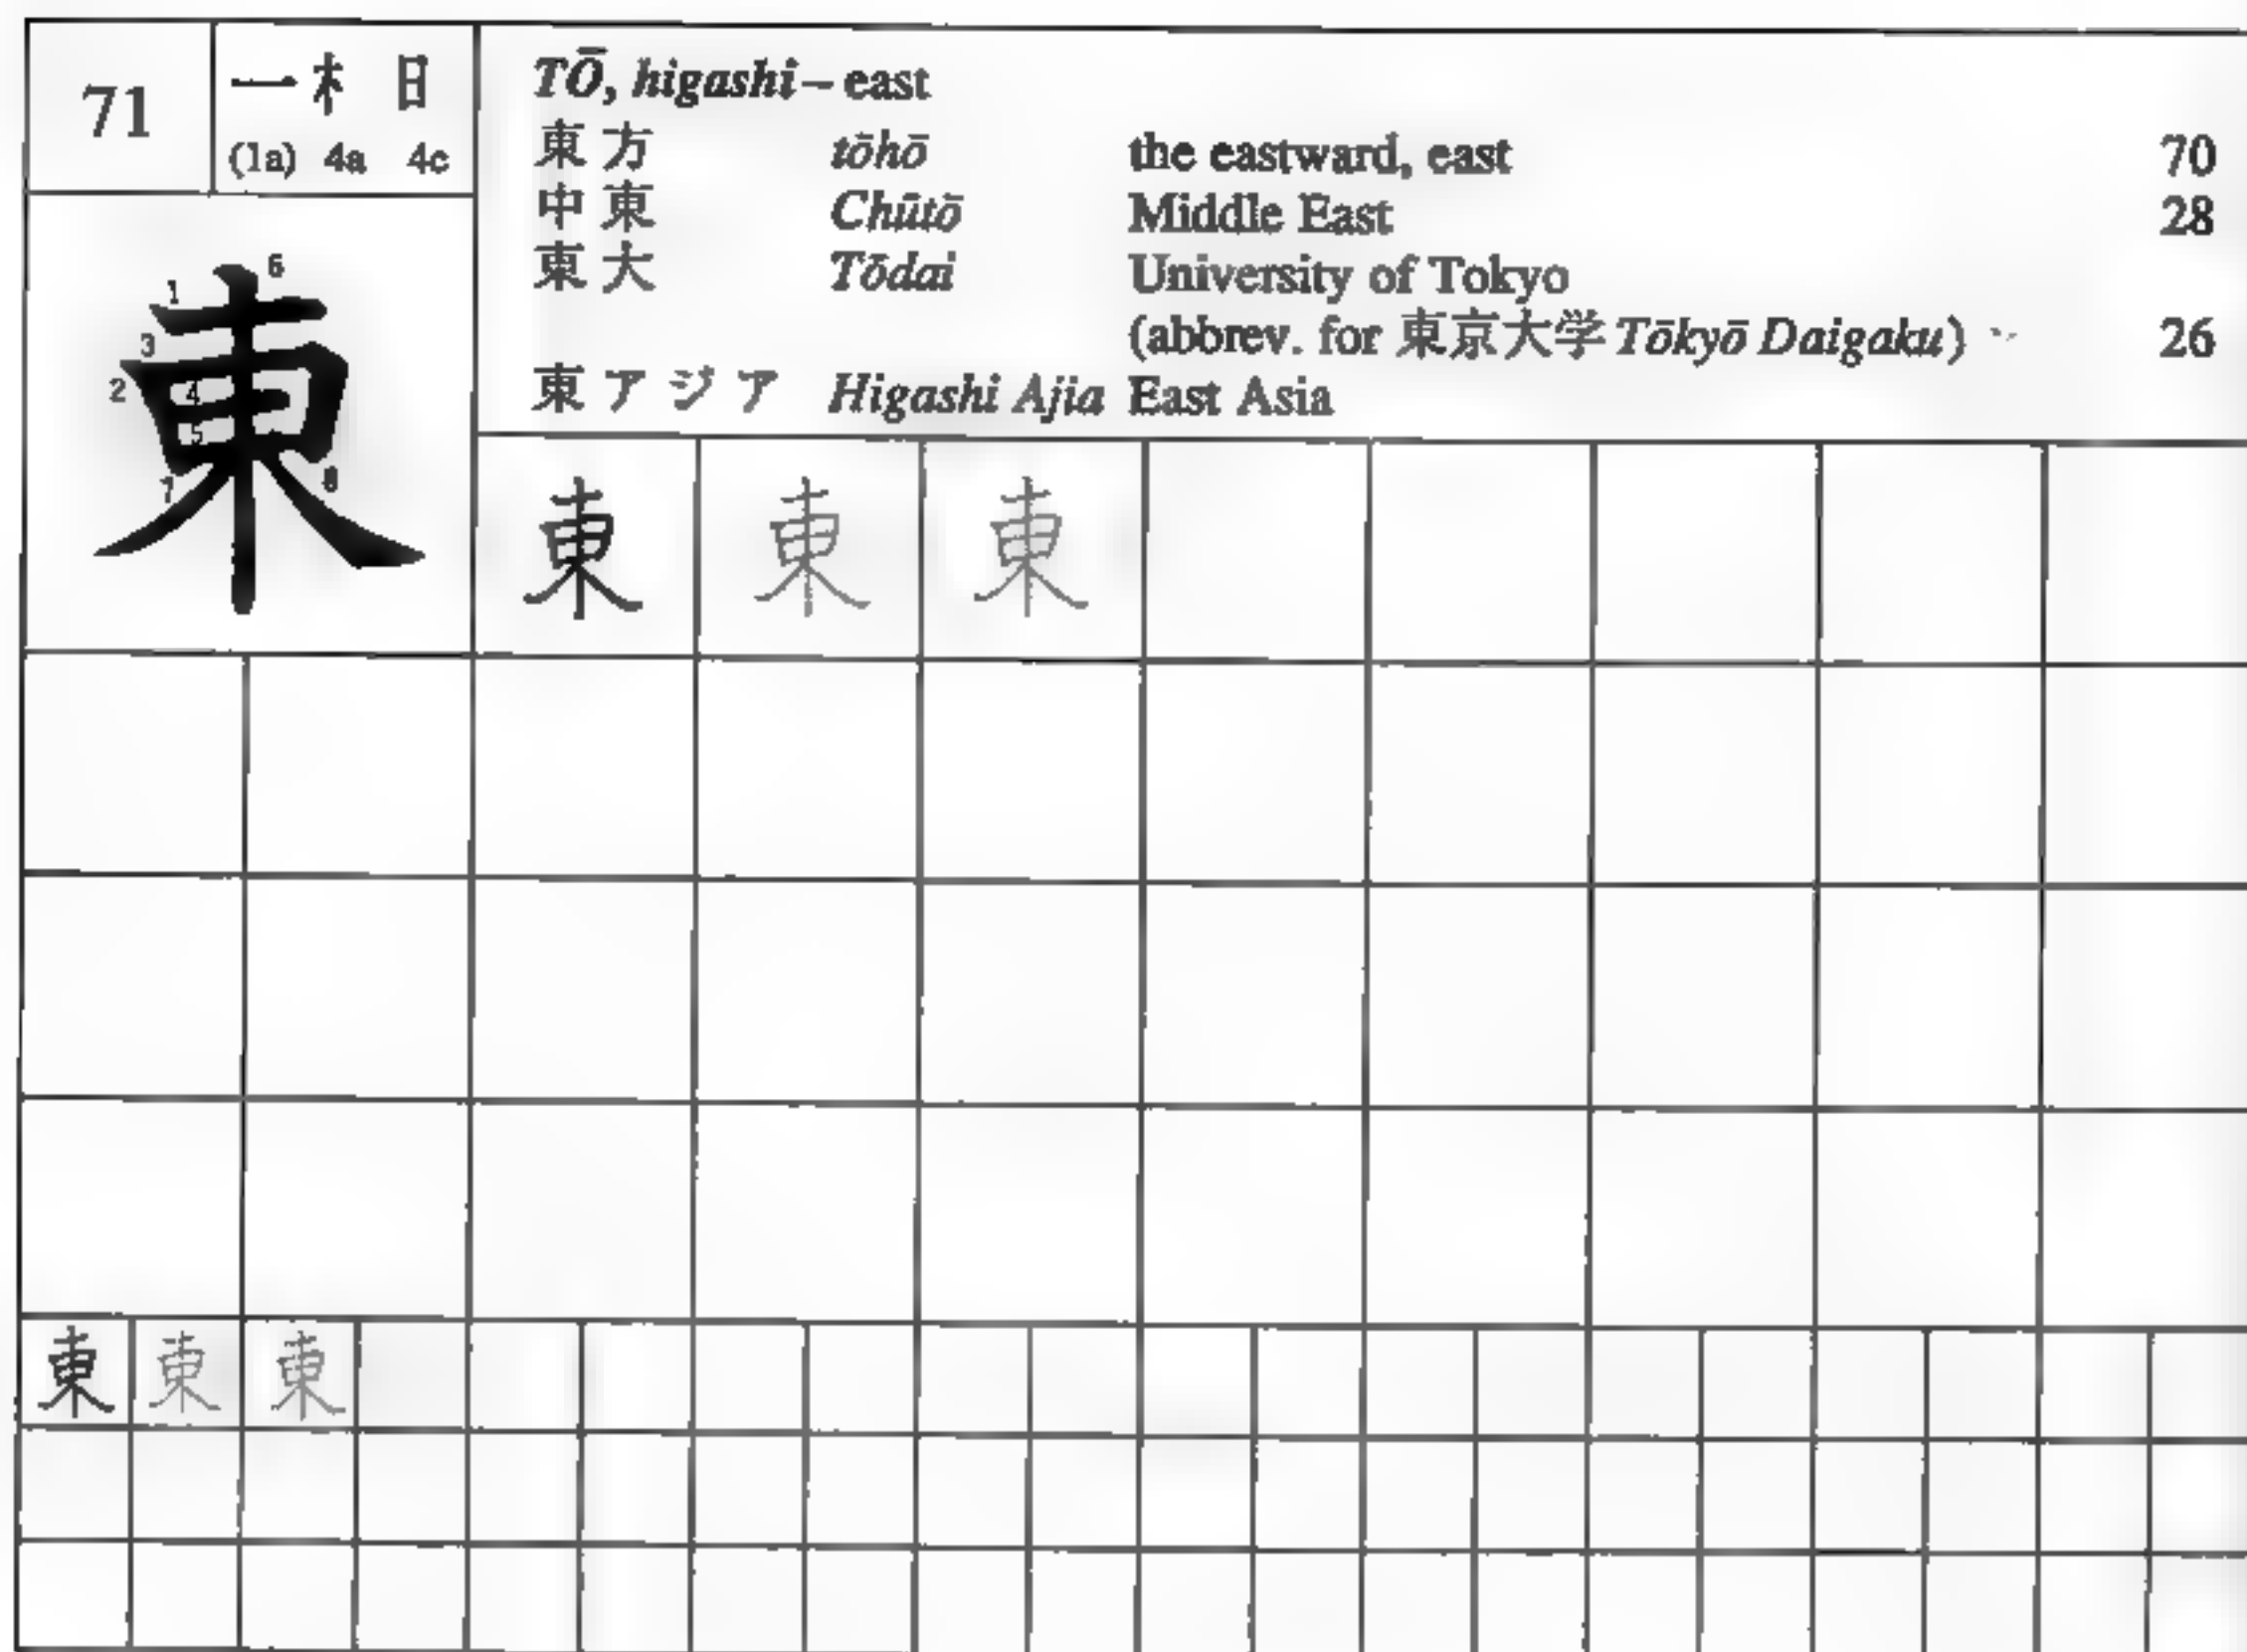 71
一 木 日
(1a) 4a 4c
TŌ, higashi – east
東方 tōhō the eastward, east 70
中東 Chūtō Middle East 28
東大 Tōdai University of Tokyo
(abbrev. for 東京大学 Tōkyō Daigaku) 26
東アジア Higashi Ajia East Asia
東
1 2 3 4 5 6 7 8
東 東 東
東 東 東